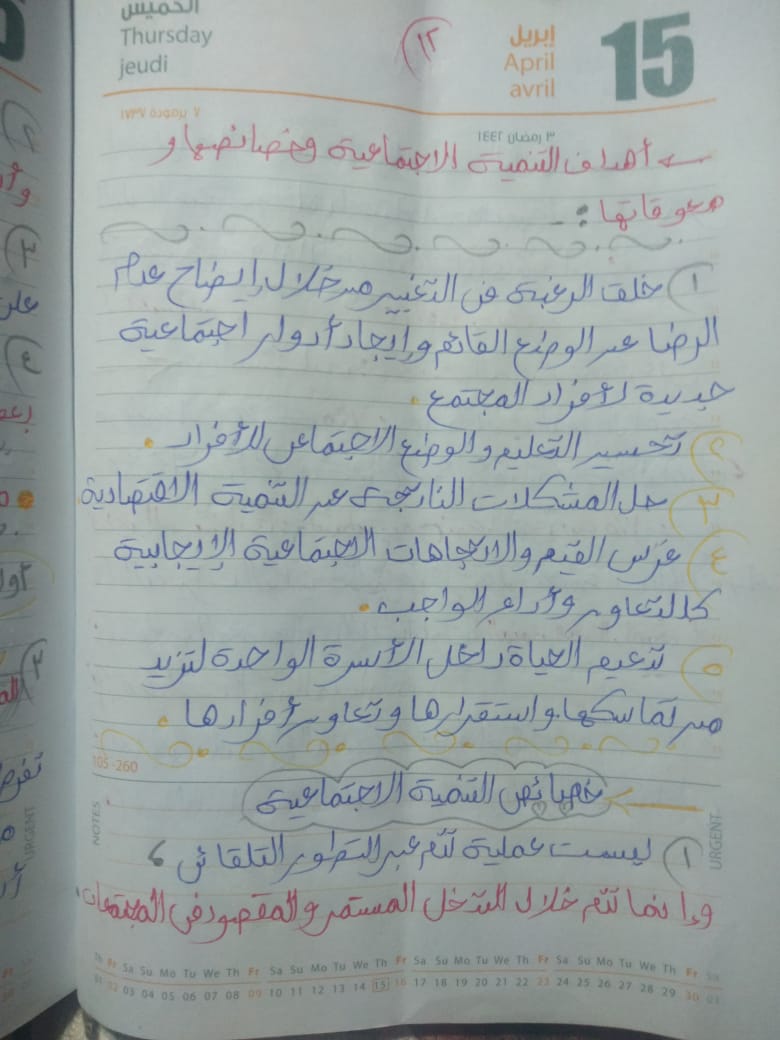 الخميس
Thursday
jeudi
١٢
إبريل
April
avril
15
٧ برمودة ١٧٣٧
٣ رمضان ١٤٤٢
← أهداف التنمية الاجتماعية وخصائصها و
معوقاتها :-
١) خلق الرغبة في التغيير من خلال إيضاح عدم
الرضا عن الوضع القائم وإيجاد أدوار اجتماعية
جديدة لأفراد المجتمع .
٢) تحسين التعليم والوضع الاجتماعي للأفراد .
٣) حل المشكلات الناتجة عن التنمية الاقتصادية
٤) غرس القيم والاتجاهات الاجتماعية الإيجابية
كالتعاون وأداء الواجب .
٥) تدعيم الحياة داخل الأسرة الواحدة لتزيد
من تماسكها واستقرارها وتعاون أفرادها .
105-260
خصائص التنمية الاجتماعية
NOTES
URGENT
١) ليست عملية تتم عبر التطور التلقائي ،
وإنما تتم خلال التدخل المستمر والمقصود في المجتمعات .
Th Fr Sa Su Mo Tu We Th Fr Sa Su Mo Tu We Th Fr Sa Su Mo Tu We Th Fr Sa Su Mo Tu We Th Fr Sa
01 02 03 04 05 06 07 08 09 10 11 12 13 14 15 16 17 18 19 20 21 22 23 24 25 26 27 28 29 30 01